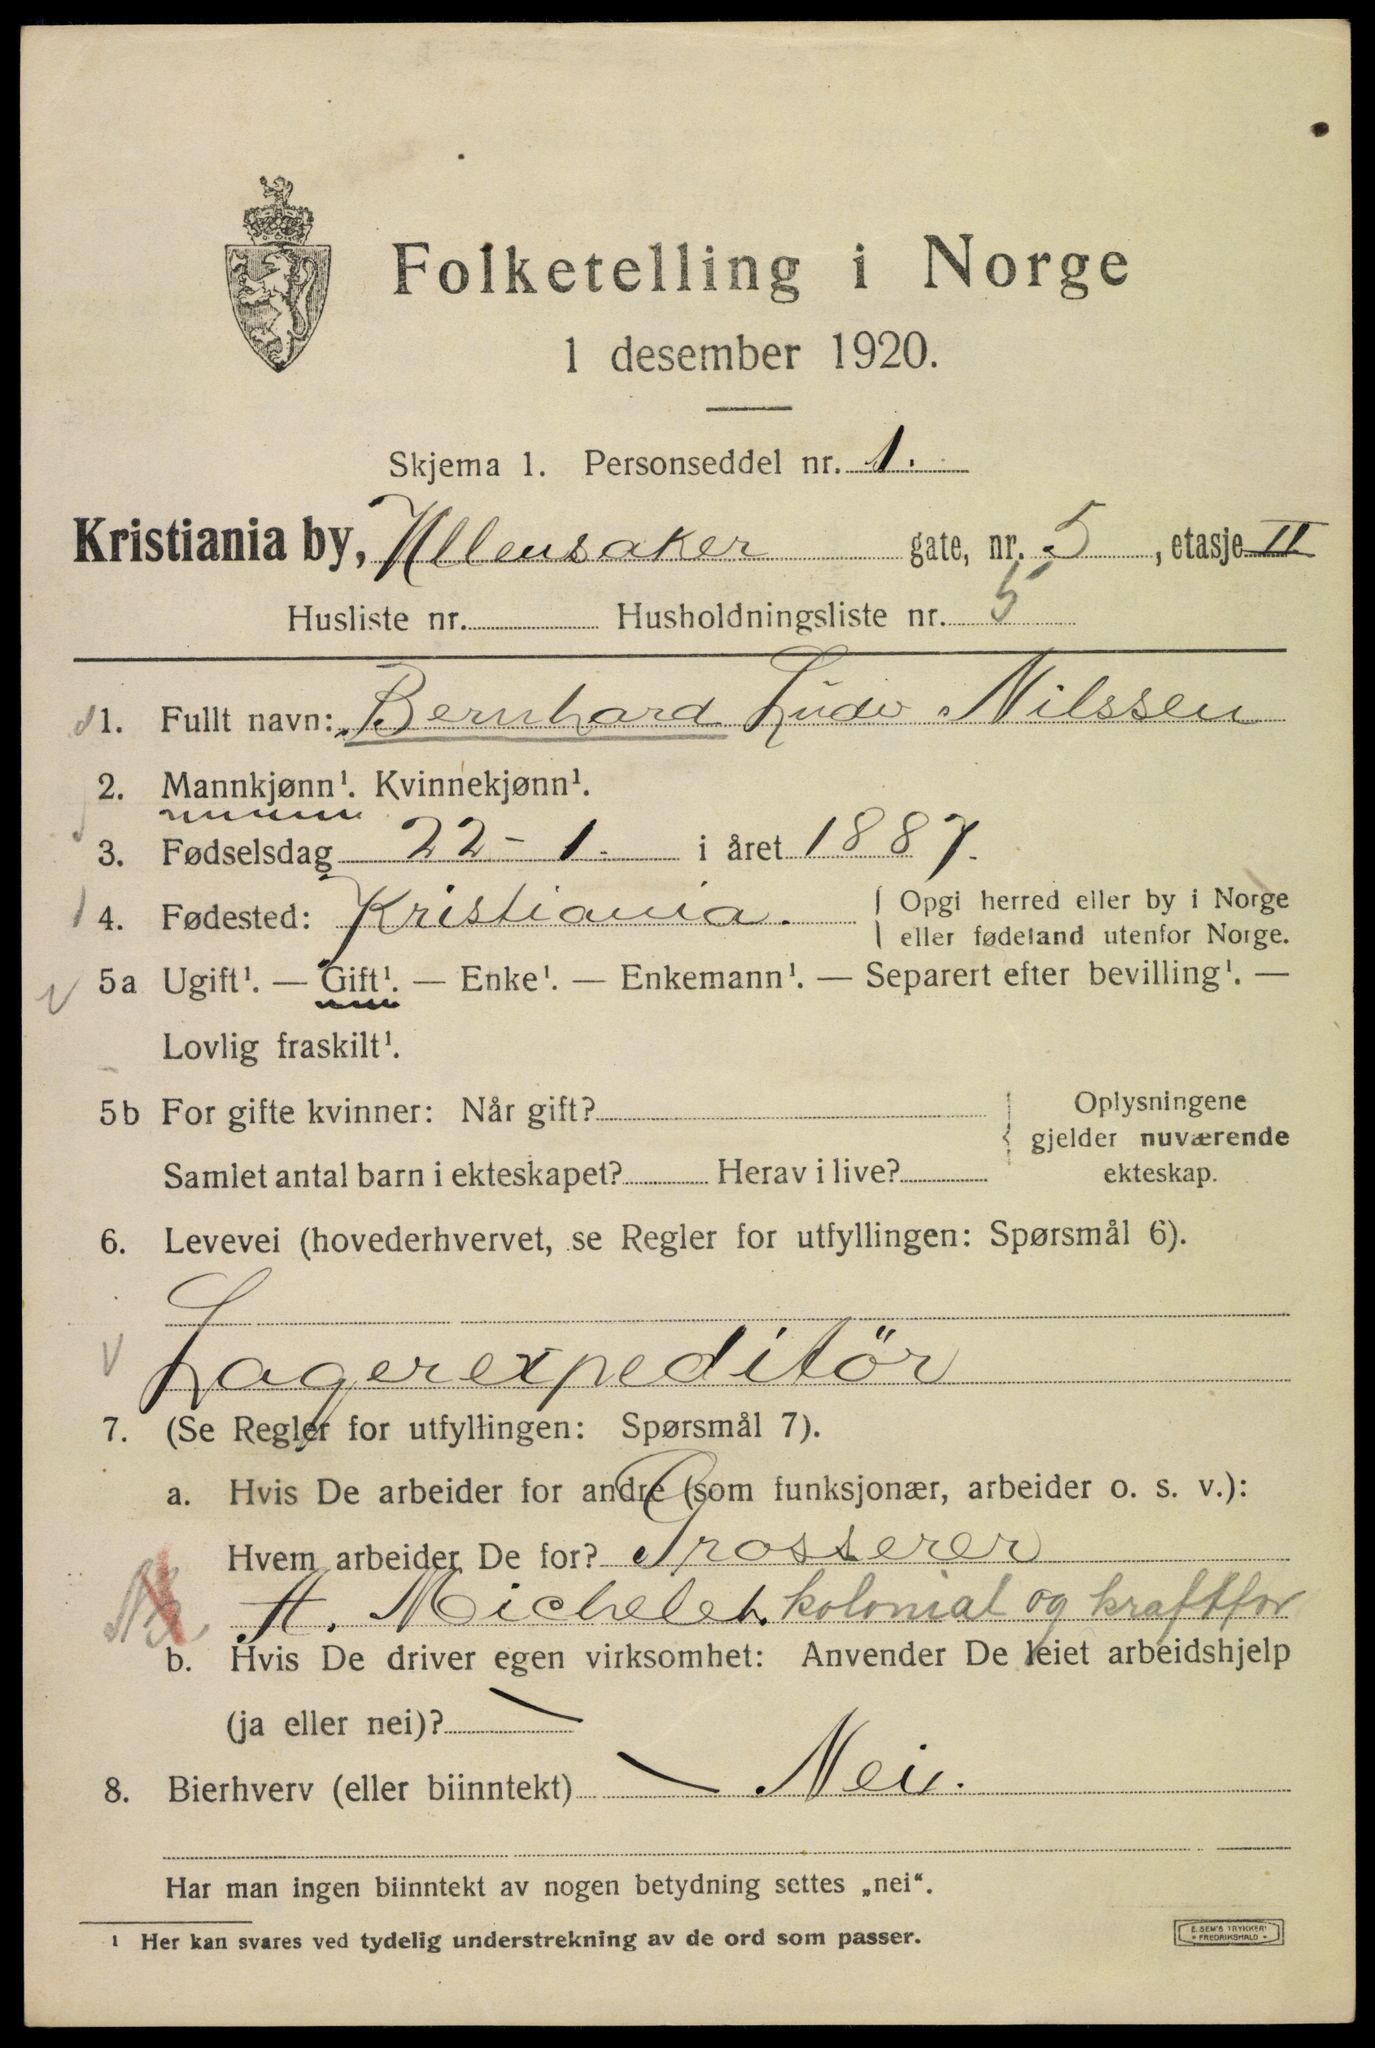 Folketelling i Norge
1 desember 1920.
Skjema 1. Personseddel nr. 1.
Kristiania by, Ullensaker gate, nr. 5, etasje II
Husliste nr. Husholdningsliste nr. 5
1. Fullt navn: Bernhard Ludv Nilssen
2. Mannkjønn¹. Kvinnekjønn¹.
3. Fødselsdag 22-1. i året 1887.
4. Fødested: Kristiania. Opgi herred eller by i Norge
eller fødeland utenfor Norge.
5a Ugift¹. — Gift¹. — Enke¹. — Enkemann¹. — Separert efter bevilling¹. —
Lovlig fraskilt¹.
5b For gifte kvinner: Når gift? Oplysningene
gjelder nuværende
Samlet antal barn i ekteskapet? Herav i live? ekteskap.
6. Levevei (hovederhvervet, se Regler for utfyllingen: Spørsmål 6).
Lagerexpeditör
7. (Se Regler for utfyllingen: Spørsmål 7).
a. Hvis De arbeider for andre (som funksjonær, arbeider o. s. v.):
Hvem arbeider De for? Grosserer
A. Michelet. kolonial og kraftfor
b. Hvis De driver egen virksomhet: Anvender De leiet arbeidshjelp
(ja eller nei)? —
8. Bierhverv (eller biinntekt) — Nei.
Har man ingen biinntekt av nogen betydning settes „nei“.
¹ Her kan svares ved tydelig understrekning av de ord som passer.
E. SEM'S TRYKKERI
FREDRIKSHALD